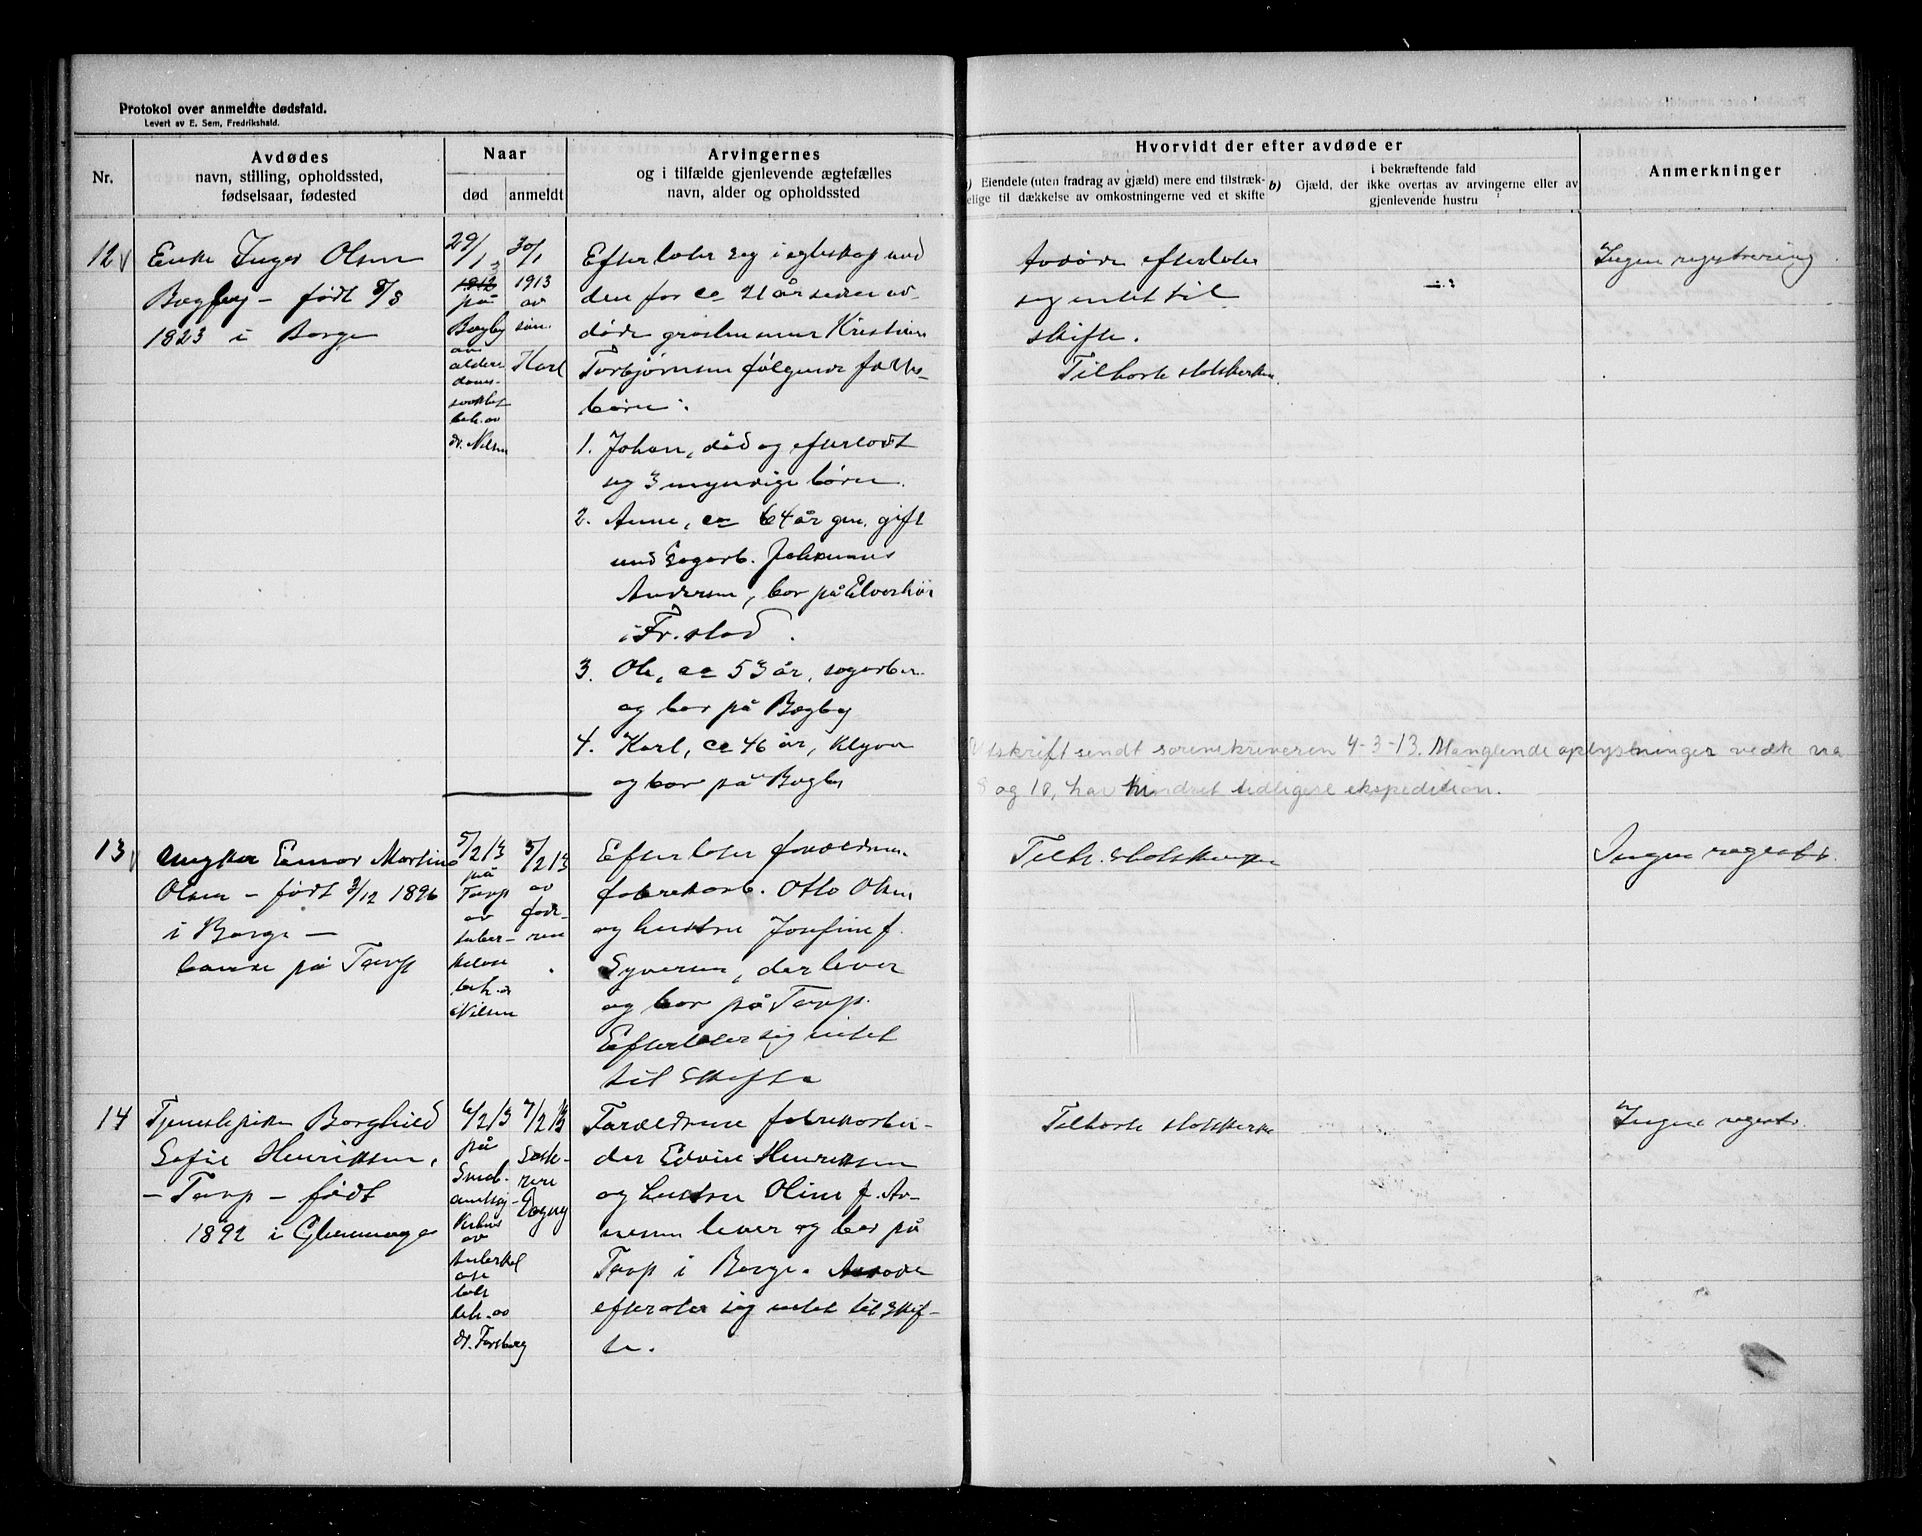 Protokol over anmeldte dødsfald.
Levert av E. Sem, Fredrikshald.
Nr.
Avdødes
navn, stilling, opholdssted,
fødselsaar, fødested
Naar
død
anmeldt
Arvingernes
og i tilfælde gjenlevende ægtefælles
navn, alder og opholdssted
Hvorvidt der efter avdøde er
a) Eiendele (uten fradrag av gjæld) mere end tilstræk-
kelige til dækkelse av omkostningerne ved et skifte
b) Gjæld, der i bekræftende fald
ikke overtas av arvingerne eller av
gjenlevende hustru
Anmerkninger
12
Enke Inger Olsen
Bøgby - født 8/8
1823 i Borge
29/1
3
1912
på
Bøgby
av
alderdoms-
svakhet
beh. av
dr. Nilsen
30/1
1913
av
søn.
Karl
Efterlater seg i egteskap med
den for ca 21 år siden av-
døde grosbemmer Kristian
Torbjørnsen følgende fælles-
børn:
1. Johan, død og efterlodt
seg 3 myndige børn.
2. Anne, ca 64 år gm. gift
med sagarb. Johannes
Andersen, bor på
i Fr.stad.
3. Ole, ca 53 år, sagarber.
og bor på Bøgby
4. Karl, ca 46 år,
og bor på Bøgby
Avdøde efterlater
seg intet til
skifte.
Tilhørte statskirken.
Ingen registrering
Utskrift sendt sorenskriveren 4-3-13. Manglende oplysninger vedk. nr
8 og 10, har hindret tidligere ekspedition.
13
Ungkar Einar Martin
Olsen - født 3/12 1896
i Borge -
bænde på Torp
5/2 13
på
Torp
av
tuber-
kulose
beh. a
Nilsen
5/2 13
av
fade-
ren
Efterlater forældrene
fabrikarb. Otto Olsen
og hustru Josefine f.
Syversen, der lever
og bor på Torp.
Efterlater sig intet
til skifte
Tilh. statskirken
Ingen registr.
14
Tjenestepike Borghild
Sofie Henriksen,
- Torp - født
1892 i Glemminge
6/2 13
på
Smed-
av
tuberkul
ose
beh. av
dr. Forsberg
7/2 13
Søste-
ren
Dagny
Forældrene fabrikarbei-
der Edvin Henriksen
og hustru Oline f. Ar-
nesen lever og bor på
Torp i Borge. Avdøde
efterater sig intet til skif-
te.
Tilhørte statskirken
Ingen registr.